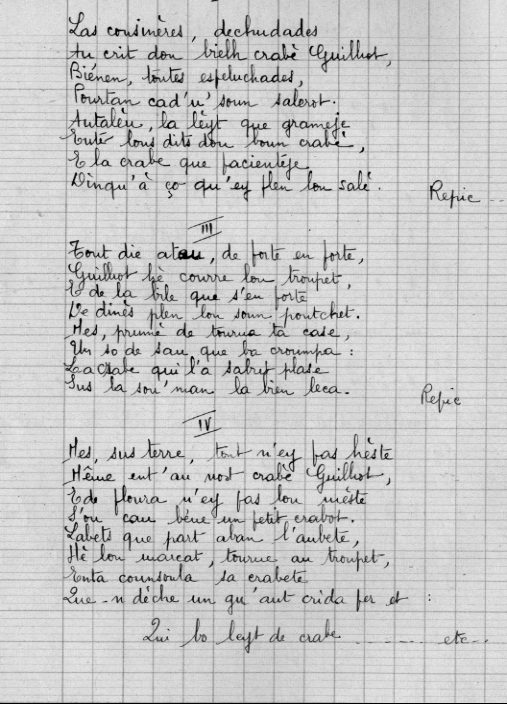 Las cousinères, dechudades
Au crit dou bielh crabè Guilhot,
Biénen, toutes espeluchades,
Pourtan cad'u' soun salerot.
Autalèu, la lèyt que grameje
Entér lous dits dou boun crabè,
E la crabe que pacientéje
Dinqu'à ço qu'ey plen lou salè.
Repic
III
Tout die atau, de porte en porte,
Guilhot hè courre lou troupet,
E de la bile que s'en porte
De dinès plen lou soun poutchet.
Mes, prumé de tourna ta case,
Un so de sau que ba croumpa :
La crabe qui l'a sabut plase
Sus la sou' man la bien leca.
Repic
IV
Mes, sus terre, tout n'ey pas hèste
Même ent'au nost crabè Guilhot,
E de ploura n'ey pas lou mèste
S'ou cau béne un petit crabot.
Labets que part aban l'aubete,
Hè lou marcat, tourne au troupet,
Enta counsoula sa crabete
Que-n dèche un qu'aut crida per et :
Qui bo leyt de crabe ... etc...